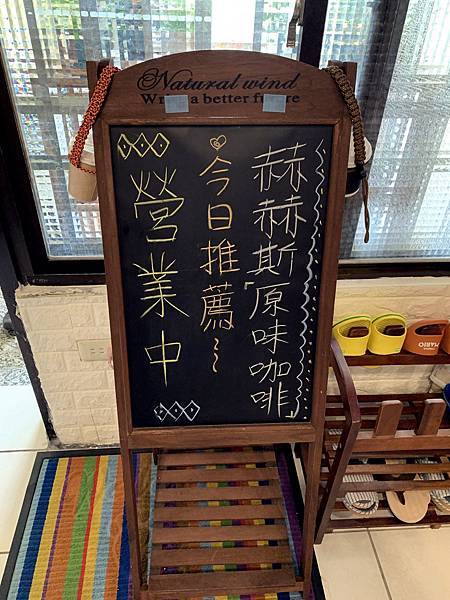 Natural wind
Write a better future
赫赫斯「原味咖啡」
今日推薦～
營業中
MARIO